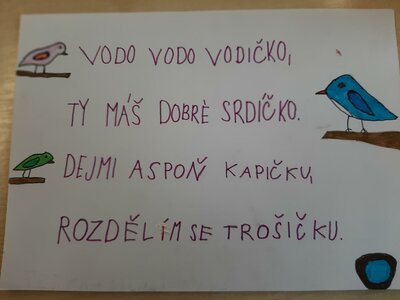 VODO VODO VODIČKO,
TY MÁŠ DOBRÈ SRDÍČKO.
DEJMI ASPOŇ KAPIČKU,
ROZDĚLÍM SE TROŠIČKU.